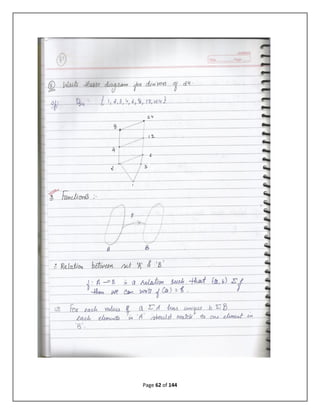 Q Write Hasse diagram for divisors of 24.
D24 : { 1, 2, 3, 4, 6, 8, 12, 24 }
24
8
12
4
6
2
3
1
Functions :-
f
A B
: Relation between set 'A' & 'B'
f : A → B is a relation such that (a, b) Σ f
then we can write f (a) = b.
For each values of a Σ A has unique b Σ B
Each elements in A should relate to one element in
B.
Page 62 of 144